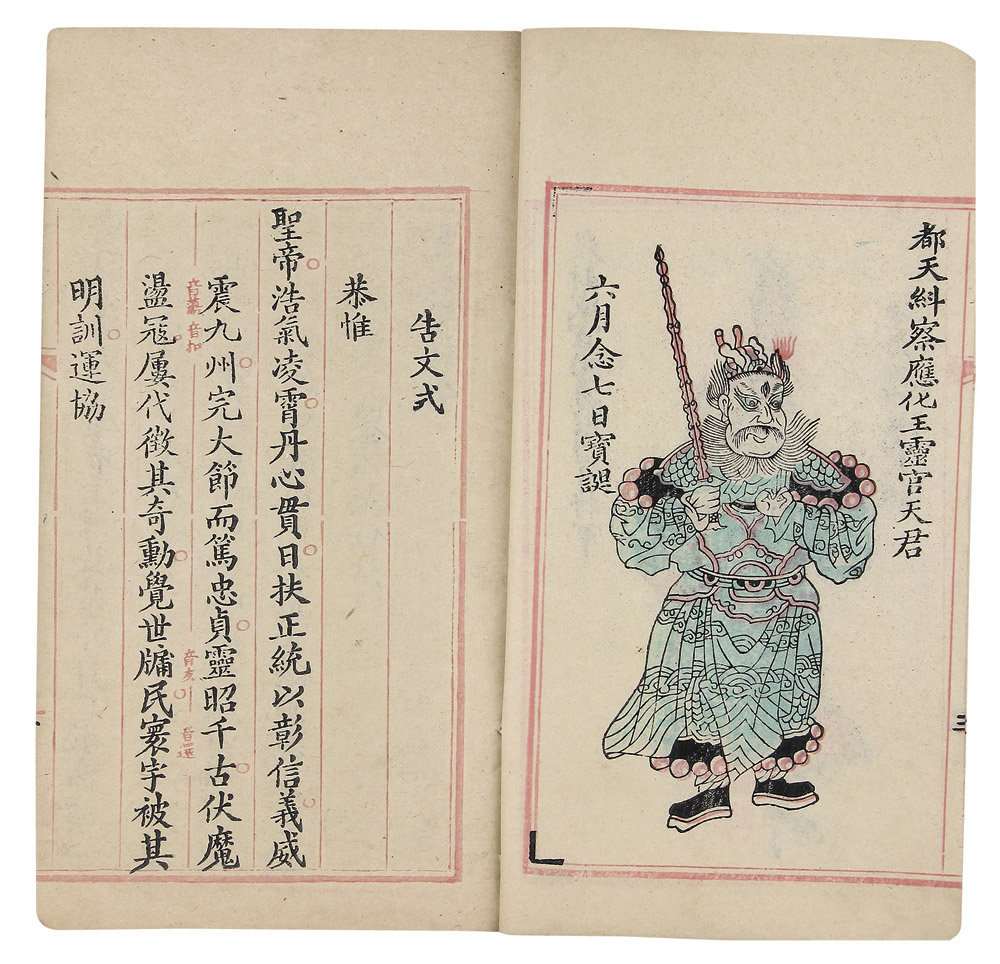 都天紏察應化王靈官天君
六月念七日寶誕
三
告文式
恭惟
聖帝浩氣凌霄丹心貫日扶正統以彰信義威
震九州完大節而篤忠貞靈昭千古伏魔
音 音扣 音 音還
盪冦屢代徵其奇勳覺世牖民寰宇被其
明訓運協